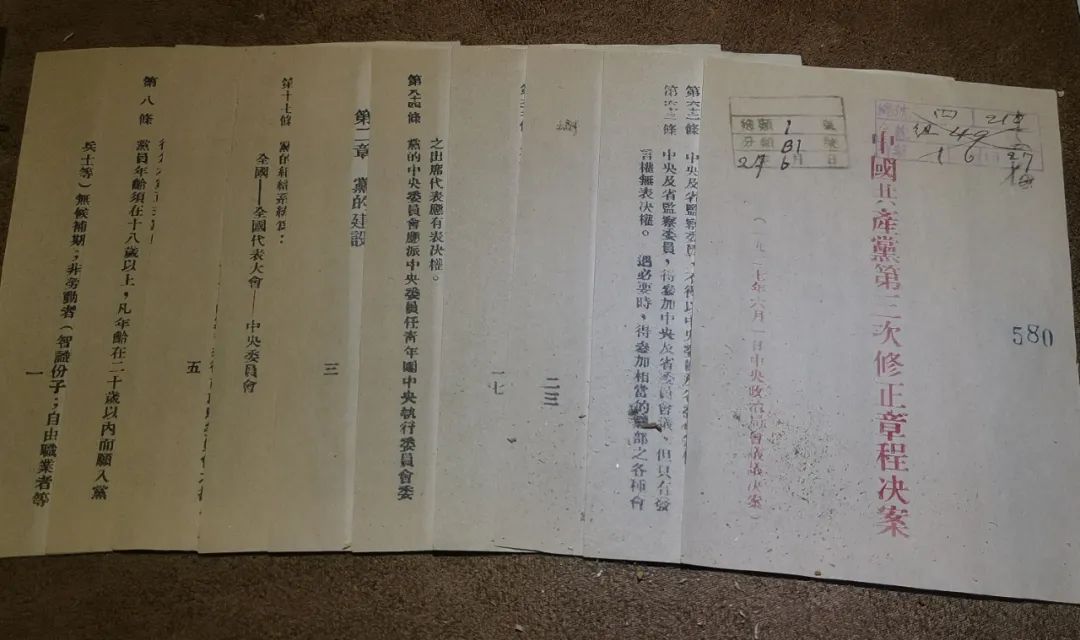 中國共產黨第三次修正章程決案
（一九二七年六月一日中央政治局會議議決案）
580
總類 1 號
分類 B1 號
27 6 月 日
四 218
49
16
27
第六十二條
第六十三條 中央及省監察委員，得參加中央及省委員會議，但只有發
言權無表決權。遇必要時，得參加相當的黨部之各種會
二三
一七
之出席代表應有表決權。
第八十四條 黨的中央委員會應派中央委員任靑年團中央執行委員會委
第二章 黨的建設
三
第十七條 黨的組織系統為：
全國——全國代表大會——中央委員會
五
第八條 黨員年齡須在十八歲以上，凡年齡在二十歲以內而願入黨
兵士等）無候補期；非勞動者（智識份子；自由職業者等
一